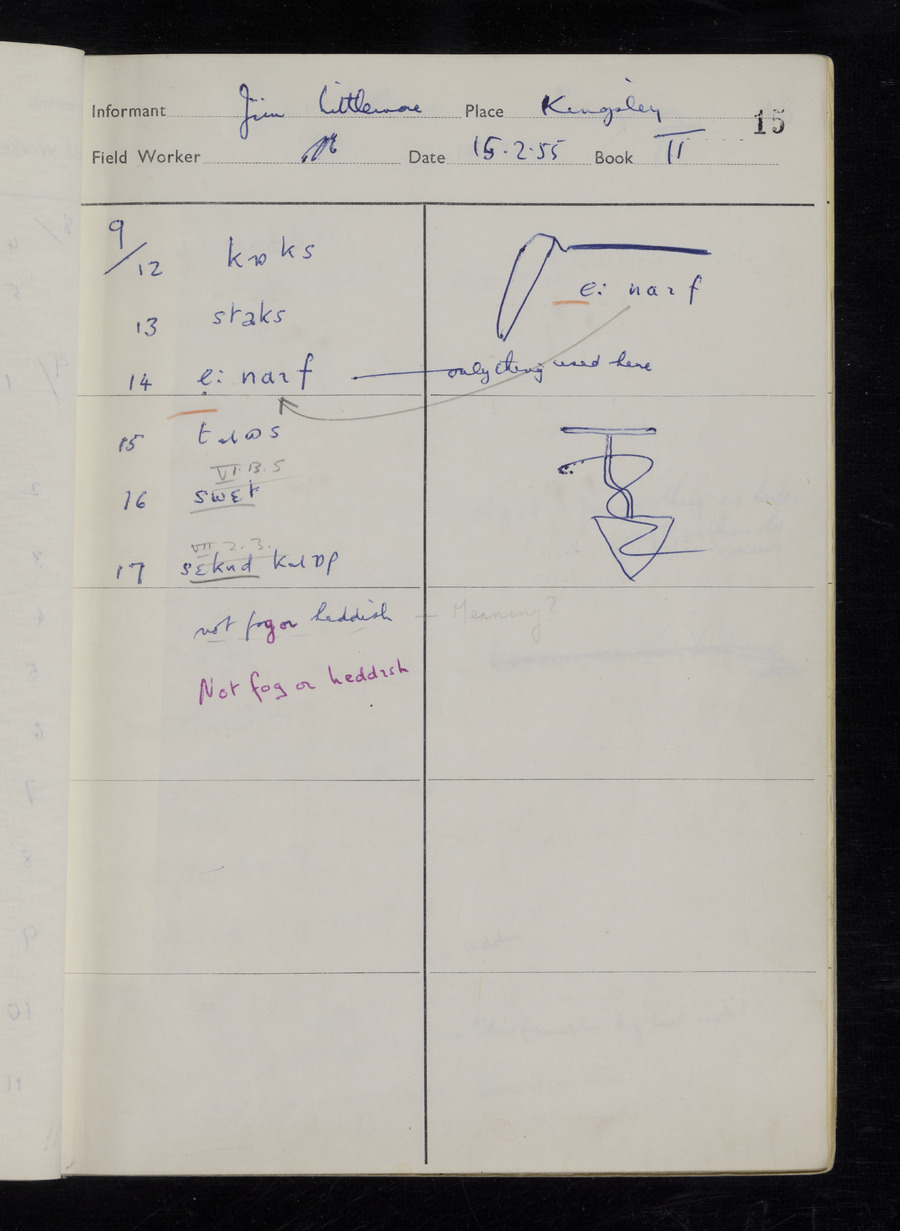 Informant Jim Littlemore Place Kingsley 15
Field Worker Date 15.2.55 Book II
9/12 kɒks
13 staks
14 e: naɪf only thing used here
e: naɪf
15
VI.13.5
16 swɛt
VII.2.3.
17 sɛknd
not fog or heddish — Meaning?
Not fog or heddish